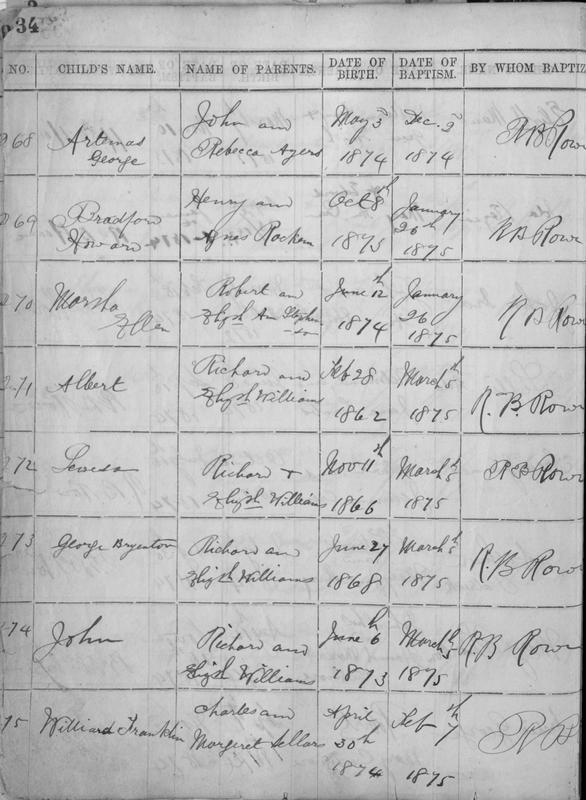 34
NO. CHILD'S NAME. NAME OF PARENTS. DATE OF BIRTH. DATE OF BAPTISM. BY WHOM BAPTIZ
268 Artemas George John and Rebecca Ayers May 3d 1874 Dec. 3d 1874 R B Rowe
269 Bradford Howard Henry and Agnes Oct 8th 1873 January 26th 1875 R B Rowe
270 Marsha Ellen Robert an Elizth Ann Stephenson June 12th 1874 January 26 1875 R B Rowe
271 Albert Richard and Elizth Williams Feb 28 1862 March 5th 1875 R. B. Rowe
272 Richard + Elizth Williams Nov 11th 1866 March 5th 1875 R B Rowe
273 George Brynton Richard an Elizth Williams June 27 1868 March 5th 1875 R. B Rowe
274 John Richard and Elizth Williams June 6th 1873 March 5th 1875 R. B Rowe
75 Williard Franklin Charles an Margaret Sellars April 30th 1874 Feb 7th 1875 R B